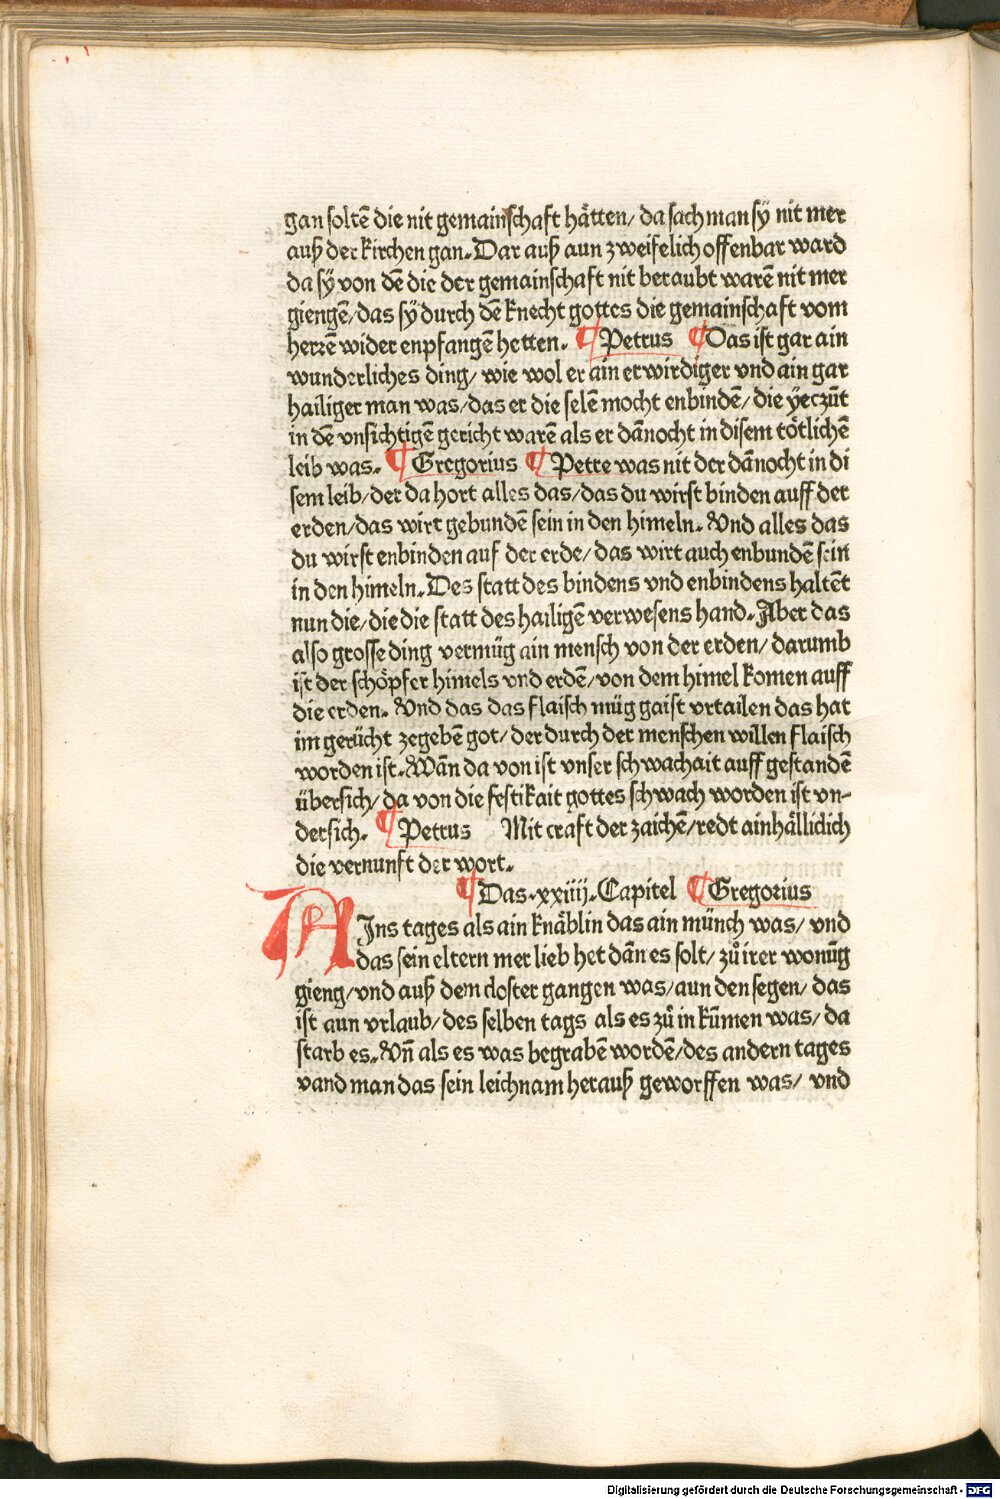 gan soltē die nit gemainschaft hätten/ da sach man sÿ nit mer
auß der kirchen gan. Dar auß aun zweifelich offenbar ward
da sÿ von dē die der gemainschaft nit beraubt warē nit mer
giengē/ das sÿ durch dē knecht gottes die gemainschaft vom
herrē wider enpfangē hetten. ¶ Petrus ¶ Das ist gar ain
wunderliches ding/ wie wol er ain erwirdiger vnd ain gar
hailiger man was/ das er die selē mocht enbindē/ die ÿeczūt
in dē vnsichtigē gericht warē als er dānocht in disem tötlichē
leib was. ¶ Gregorius ¶ Petre was nit der dānocht in di
sem leib/ der da hort alles das/ das du wirst binden auff der
erden/ das wirt gebundē sein in den himeln. Vnd alles das
du wirst enbinden auf der erde/ das wirt auch enbundē sein
in den himeln. Des statt des bindens vnd enbindens haltēt
nun die/ die die statt des hailigē verwesens hand. Aber das
also grosse ding vermüg ain mensch von der erden/ darumb
ist der schöpfer himels vnd erdē/ von dem himel komen auff
die erden. Vnd das das flaisch müg gaist vrtailen das hat
im gerücht zegebē got/ der durch der menschen willen flaisch
worden ist. Wān da von ist vnser schwachait auff gestandē
übersich/ da von die festikait gottes schwach worden ist vn-
dersich. ¶ Petrus Mit craft der zaichē/ redt ainhällidich
die vernunft der wort.
¶ Das .xxiiij. Capitel ¶ Gregorius
AIns tages als ain knäblin das ain münch was/ vnd
das sein eltern mer lieb het dān es solt/ zů irer wonūg
gieng/ vnd auß dem closter gangen was/ aun den segen/ das
ist aun vrlaub/ des selben tags als es zů in kūmen was/ da
starb es. Vn̄ als es was begrabē wordē/ des andern tages
vand man das sein leichnam herauß geworffen was/ vnd
Digitalisierung gefördert durch die Deutsche Forschungsgemeinschaft - DFG